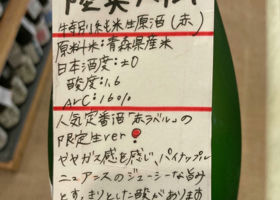 陸奥八仙
特別純米生原酒(赤)
原料米:青森県産米
日本酒度:±0
酸度:1.6
ALC:16%
人気定番酒「赤ラベル」の
限定生ver
ややガス感を感じ、パイナップル
ニュアンスのジューシーな旨み
とすっきりとした酸があります